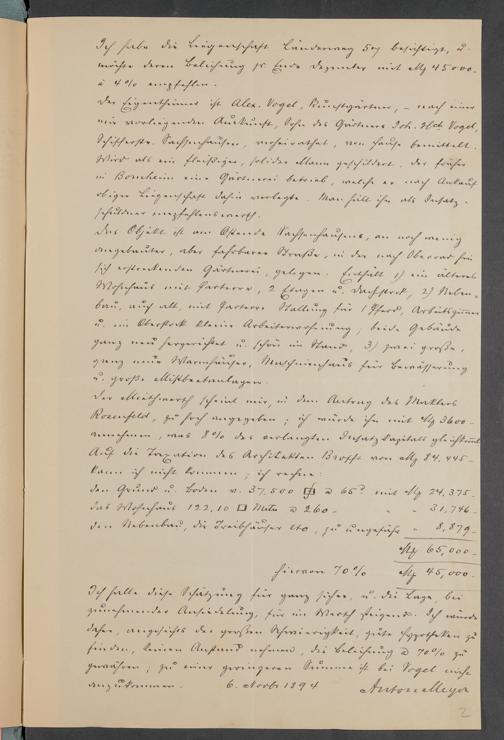 Ich habe die Liegenschaft Länderweg 509 besichtigt, u.
möchte deren Beleihung pr Ende Dezember mit M 45 000.-
à 4% empfehlen.
Der Eigenthümer ist Alex. Vogel, Kunstgärtner, - nach einer
mir vorliegenden Auskunft, Sohn des Gärtners Joh. Vogel,
Schifferstr. Sachsenhausen, verheirathet, von Hause bemittelt.
Wird als ein fleißiger, solider Mann geschildert, der früher
in Bornheim eine Gärtnerei betrieb, welche er nach Ankauf
obiger Liegenschaft dahin verlegte. Man hält ihn als Insatz-
schuldner empfehlenswerth.
Das Objekt ist am Ostende Sachsenhausens, an noch wenig
angebauter, aber fahrbarer Straße, in der nach Oberrad hin
sich erstreckenden Gärtnerei, gelegen. Enthält 1) ein älteres
Wohnhaus mit Parterre, 2 Etagen u. Dachstock, 2) Neben-
bau, auch alt, mit Parterre Stallung für 1 Pferd, Arbeitszimmer
u. im Oberstock kleine Arbeiterwohnung, beide Gebäude
ganz neu hergerichtet u. schön im Stand, 3) zwei große,
ganz neue Warmhäuser, Maschinenhaus für Bewässerung
u. große Mistbeetanlagen.
Der Miethwerth scheint mir, in dem Antrag des Maklers
Rosenfeld, zu hoch angegeben; ich würde ihn mit M 3600.-
annehmen, was 8% des verlangten Insatzkapitals gleichkommt
Auf die Taxation des Architekten von M 84,445.-
kann ich nicht kommen; ich rechne:
den Grund u. Boden v. 37,500 à 65 mit M 24,375.-
das Wohnhaus 122.10 □ Meter à 260.- " " 31,746.-
den Nebenbau, die Treibhäuser etc, zu ungefähr " 8,879.-
M 65,000.-
hiervon 70% M 45,000.-
Ich halte diese Schätzung für ganz sicher, u. die Lage, bei
zunehmender Ansiedelung, für im Werth steigend. Ich würde
daher, angesichts der großen Schwierigkeit, gute Hypotheken zu
finden, keinen Anstand nehmen, die Beleihung à 70% zu
gewähren; zu einer geringeren Summe ist bei Vogel nicht
anzukommen. 6. Novbr 1894 Anton Meyer
2